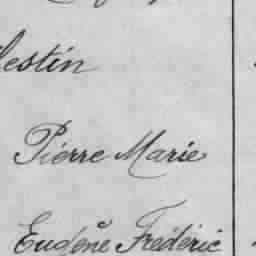 lestin
Pierre Marie
Eugène Frédéric